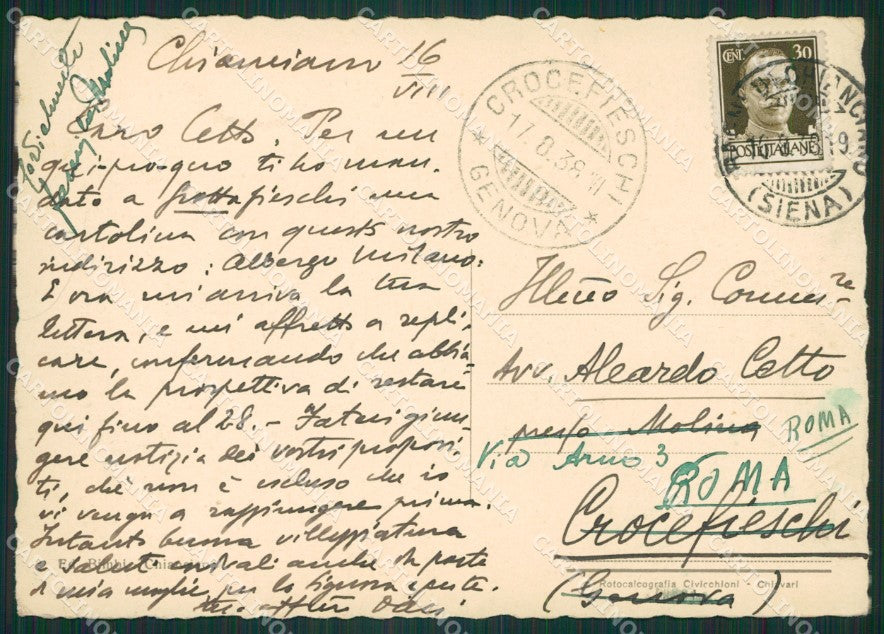 Chianciano 16
VIII
Caro Cetto, Per un
qui-pro-quo ti ho man-
dato a Grottafieschi una
cartolina con questo nostro
indirizzo: Albergo Milano.
E ora mi arriva la tua
lettera, e mi affretto a repli-
care, confermando che abbia-
mo la prospettiva di restare
qui fino al 28. - Fatemi giun-
gere notizia dei vostri proposi-
ti, chè non è escluso che io
vi venga a raggiungere prima.
Intanto buona villeggiatura
e saluti cordiali anche da parte
di mia moglie per la Signora e per te.
Molina
CROCEFIESCHI
17.8.38
* GENOVA *
CENT. 30
POSTE ITALIANE
CHIANCIANO
(SIENA)
Illmo Sig. Comm.re
Avv. Aleardo Cetto
presso Molina
ROMA
Via Arno 3
ROMA
Crocefieschi
(Genova)
Rotocalcografia Civicchioni - Chiavari
CARTOLINOMANIA